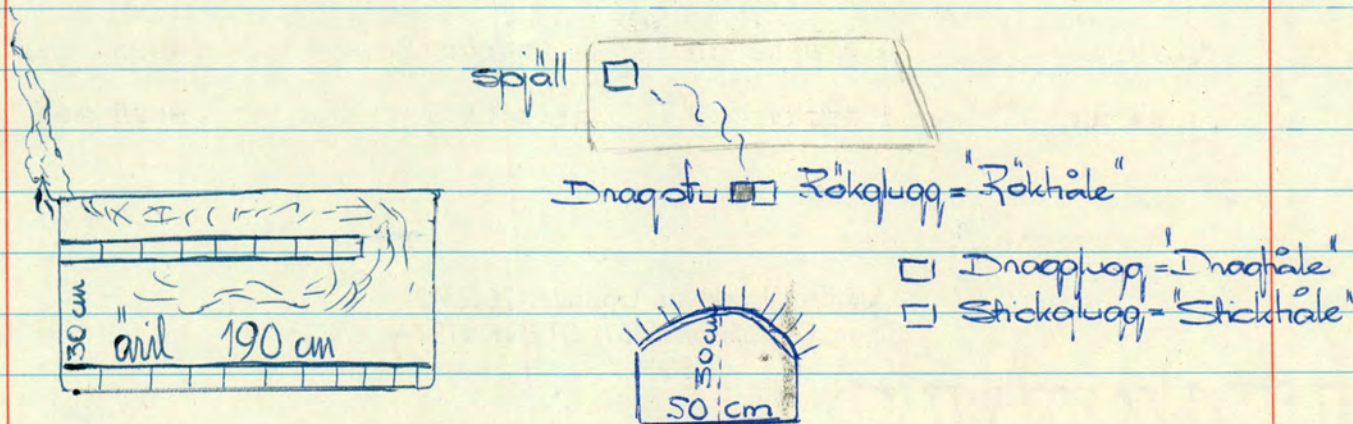 spjäll
Dragstu Rökglugg = "Rökhåle"
Dragglugg = "Draghåle"
Stickglugg = "Stickhåle"
30 cm
äril 190 cm
30 cm
50 cm